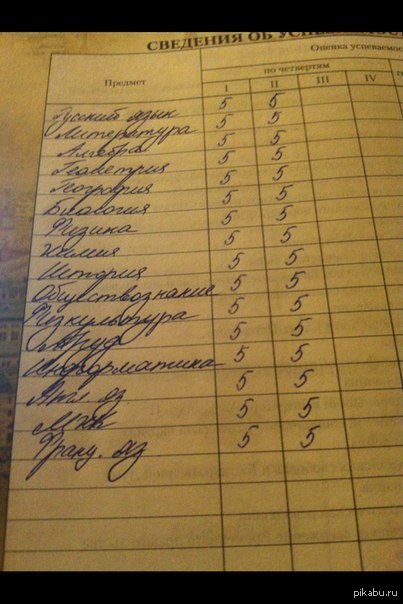 СВЕДЕНИЯ ОБ УСПЕВАЕМОС
Оценка успеваемос
Предмет
по четвертям
I II III IV
Русский язык 5 5
Литература 5 5
Алгебра 5 5
Геометрия 5 5
География 5 5
Биология 5 5
Физика 5 5
Химия 5 5
История 5 5
Обществознание 5 5
Физкультура 5 5
Труд 5 5
Информатика 5 5
Англ. яз. 5 5
МХК 5 5
Франц. яз 5 5
pikabu.ru